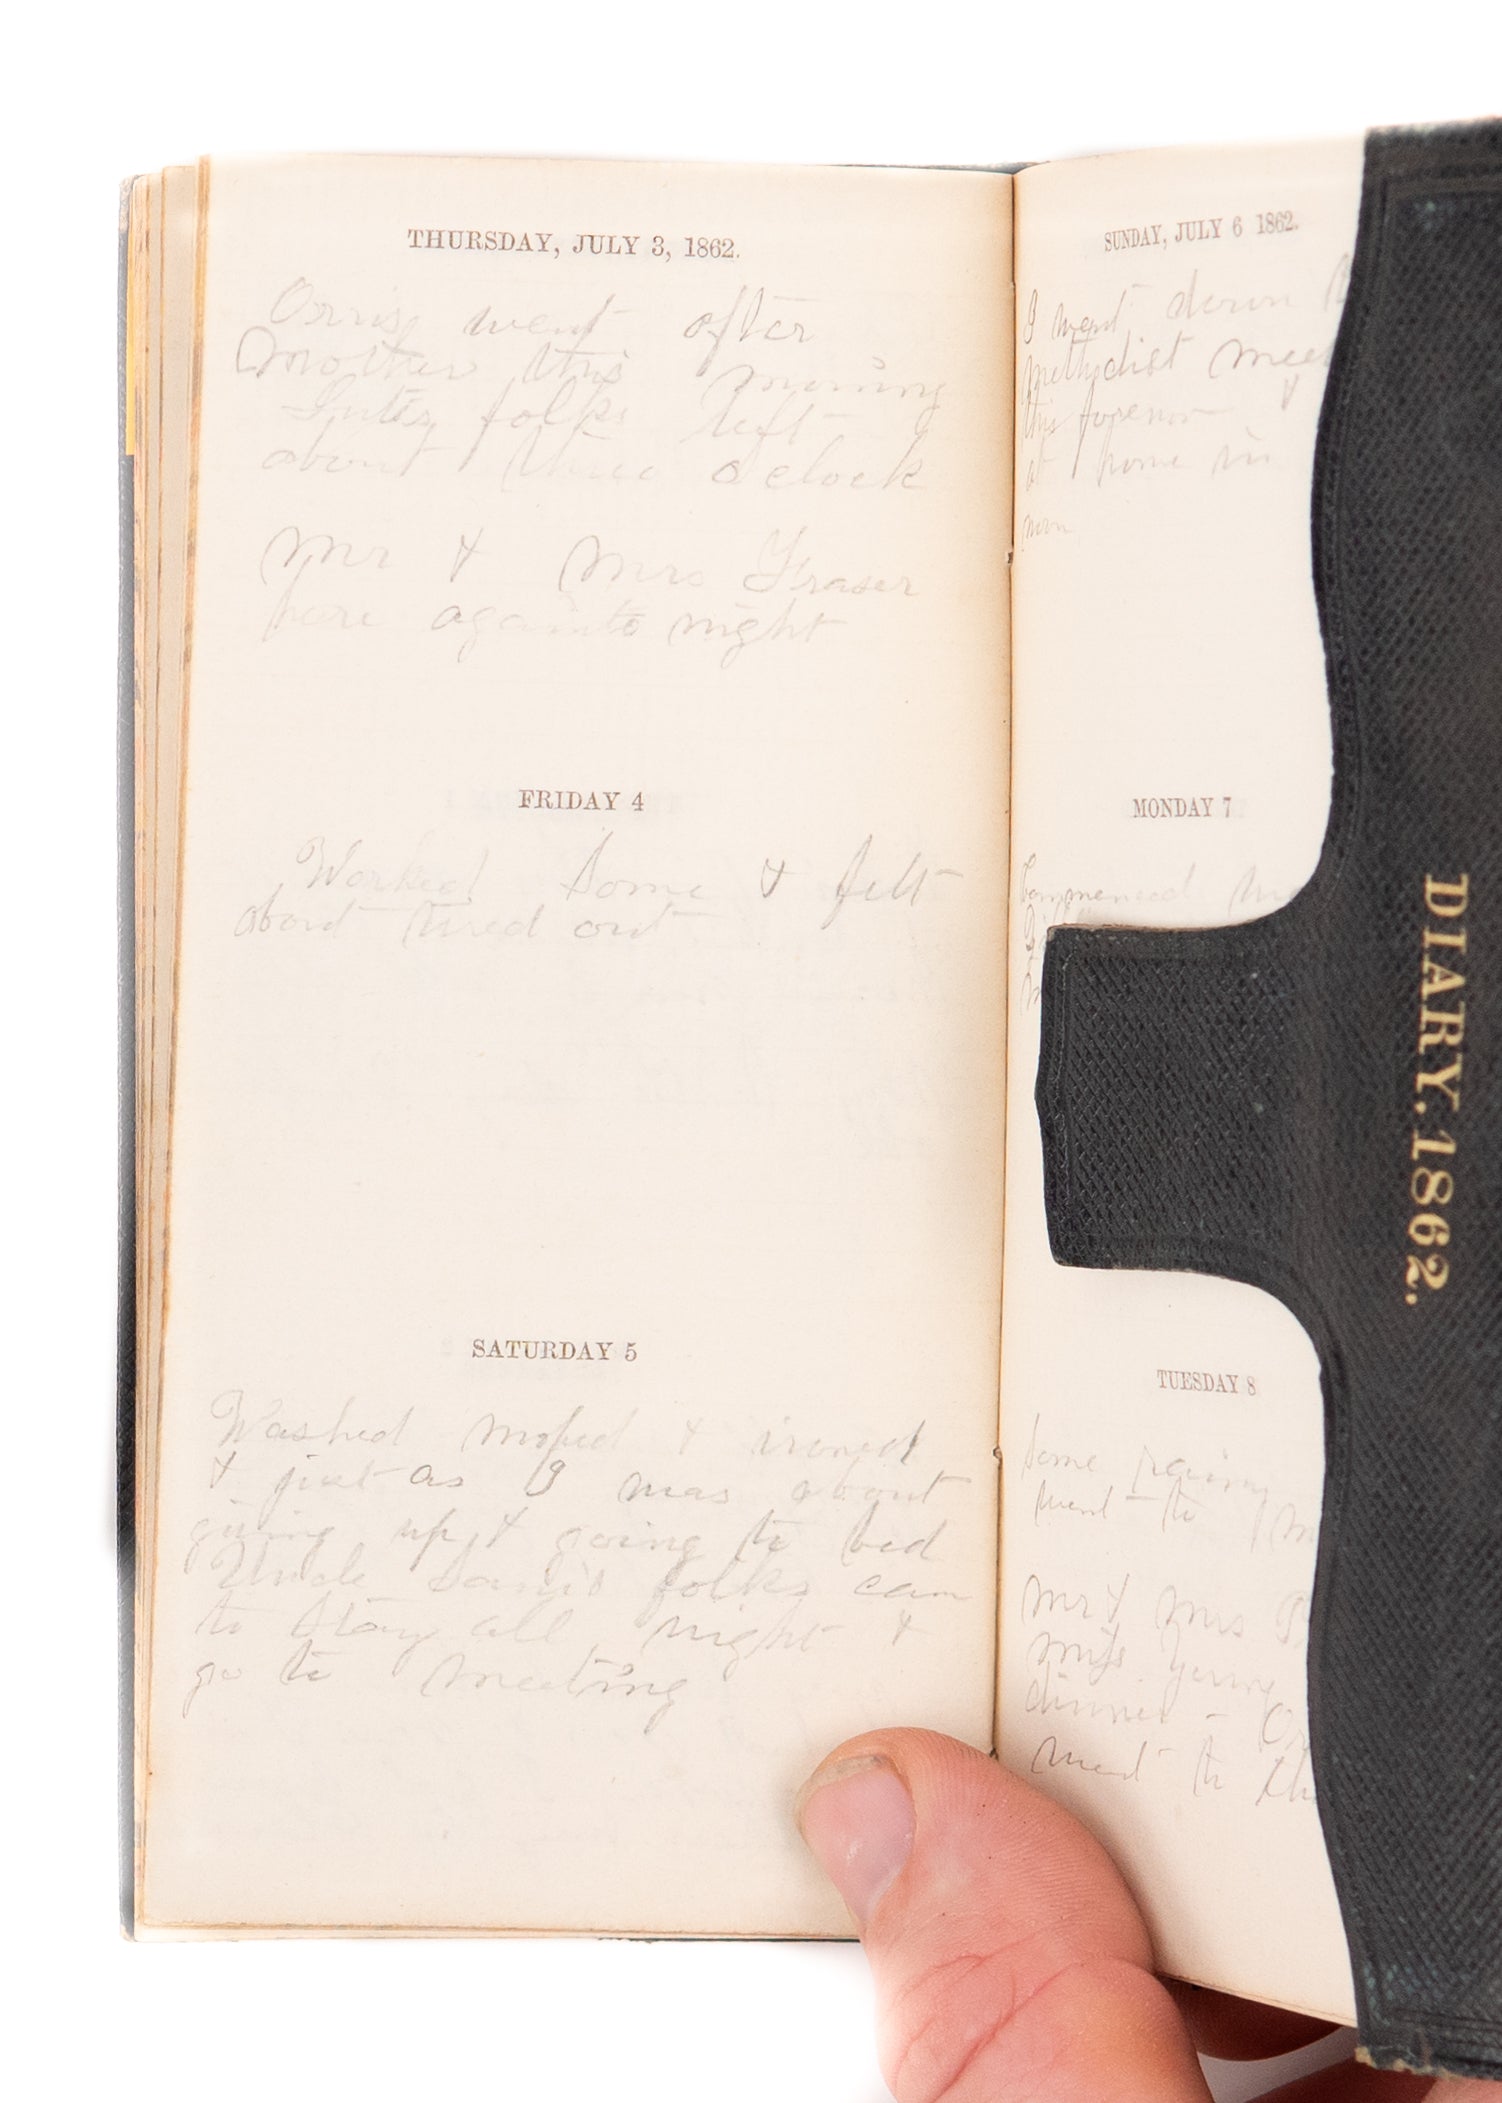 THURSDAY, JULY 3, 1862.
Orris went after
Mother this morning
folks left
about three oclock
Mr & Mrs Fraser
here again to night
FRIDAY 4
Worked some & felt
about tired out
SATURDAY 5
Washed moped & ironed
& just as I was about
giving up & going to bed
Uncle folks cam
to stay all night &
go to meeting
SUNDAY, JULY 6 1862.
I went down
methodist
this forenon &
at home in
noon
MONDAY 7
Commenced
TUESDAY 8
Some
went to
Mr & Mrs
Miss Young
dinner -
went to
DIARY, 1862.